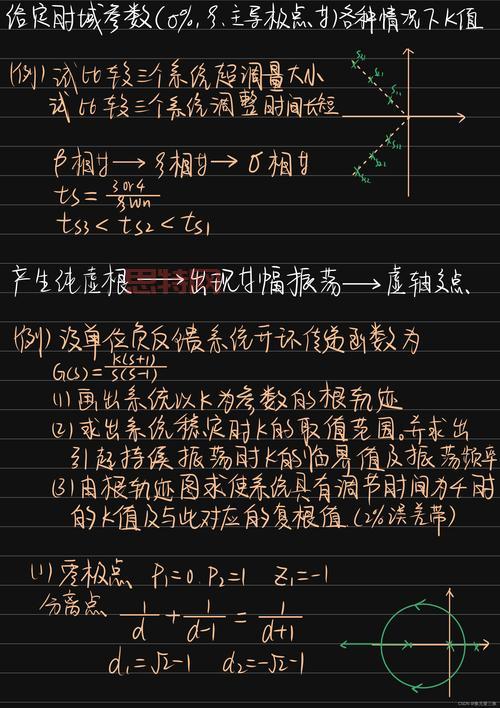 给定时域参数(σ%,ξ,主导极点,β)各种情况下K值
(例)试比较三个系统超调量大小
试比较三个系统调整时间长短
β相等→ξ相等→σ相等
ts=3or4/ξωn
ts3<ts2<ts1
产生纯虚根→出现等幅振荡→虚轴交点
(例)设单位负反馈系统开环传递函数为
G(s)=K(s+1)/s(s-1)
(1)画出系统以K为参数的根轨迹
(2)求出系统稳定时K的取值范围。并求出
引起持续振荡时K的临界值及振荡频率
(3)由根轨迹图求使系统具有调节时间为4时
的K值及与此对应的复根值.(2%误差带)
(1)零极点 P1=0.P2=1 Z1=-1
分离点 1/d+1/d-1=1/d+1
d1=√2-1 d2=-√2-1